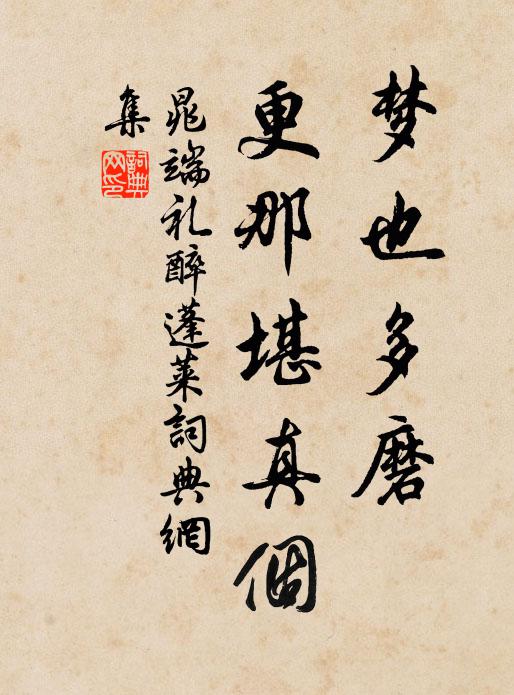 梦也多磨
更那堪真個
晁端礼醉蓬莱詞典網
集
詞典网印